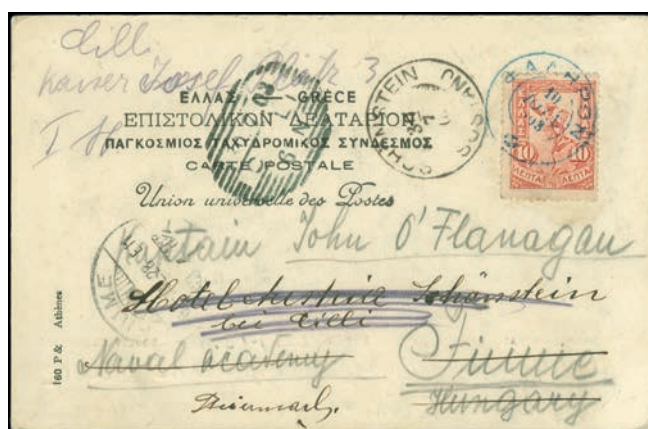 Cilli
Kaiser Josef Platz 3
ΕΛΛΑΣ GRÈCE
ΕΠΙΣΤΟΛΙΚΟΝ ΔΕΛΤΑΡΙΟΝ
ΠΑΓΚΟΣΜΙΟΣ ΤΑΧΥΔΡΟΜΙΚΟΣ ΣΥΝΔΕΣΜΟΣ
CARTE POSTALE
Union universelle des Postes
SCHÖNSTEIN
10 10
ΛΕΠΤΑ ΛΕΠΤΑ
Kaptain John O'Flanagan
Hotel Austria Schönstein
bei Cilli
Naval academy Fiume
Hungary
Steiermark.
160 P & Athènes